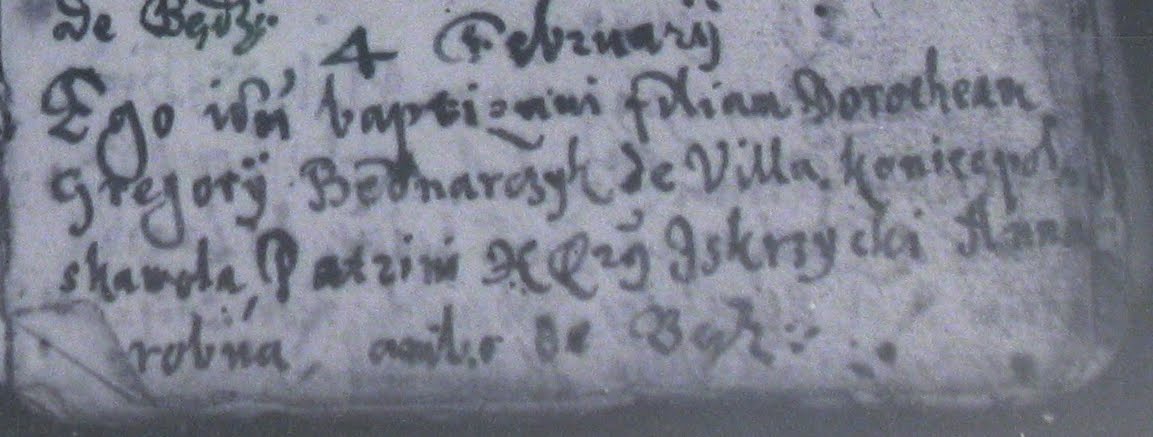 de Będz:
4 Februarij
Ego idem baptizaui filiam Dorotheam
Gregorij Bednarczyk de Villa koniecpol
skawola, Patrini Iskrzycki Anna
robna, ambo de Będz: